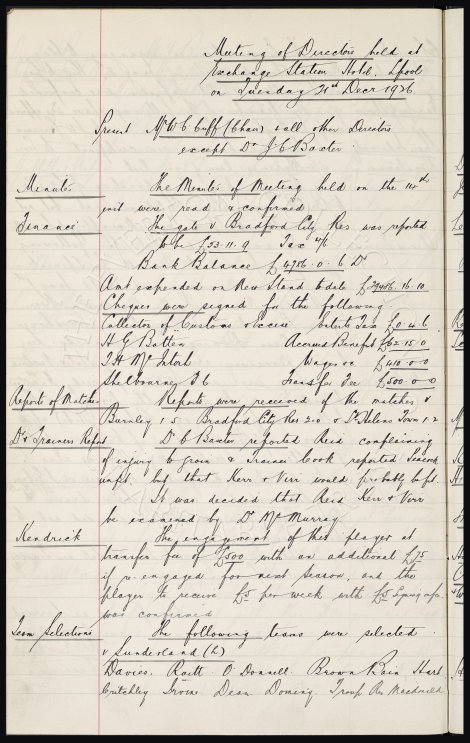 Meeting of Directors held at
Exchange Station Hotel. Lpool
on Tuesday 21st Decr 1926
Present Mr W C Cuff (Chair) & all other Directors
except Dr J C Baxter.
Minutes The Minutes of Meeting held on the 14th
inst were read & confirmed
Finance The gate v Bradford City Res was reported
to be £33.11.9 Tax 4/1
Bank Balance £4786.0.6 Dr
Amt expended on New Stand to date £29486.16.10
Cheques were signed for the following
Collector of Customs & Excise Enterts Tax £0.4.6
H G Batten Accrued Benefit £62.15.0
T. H. McIntosh Wages &c £410-0-0
Shelbourne F C Transfer Fee £500-0-0
Reports of Matches Reports were received of the matches v
Burnley 1.5 Bradford City Res 2.0 & St Helens Town 1-2
Dr & Trainers Report Dr C Baxter reported Reid complaining
of injury to groin & Trainer Cook reported
unfit, but that Kerr & Virr would probably be fit.
It was decided that Reid Kerr & Virr
be examined by Dr McMurray.
Kendrick The engagement of this player at
transfer fee of £500 with an additional £75
if re-engaged for next season, and the
player to receive £5 per week with £5
was confirmed
Team Selections The following teams were selected.
v Sunderland (h)
Davies. Raitt. O'Donnell. Brown Bain Hart
Critchley Irvine. Dean Dominy. Troup Res Macdonald